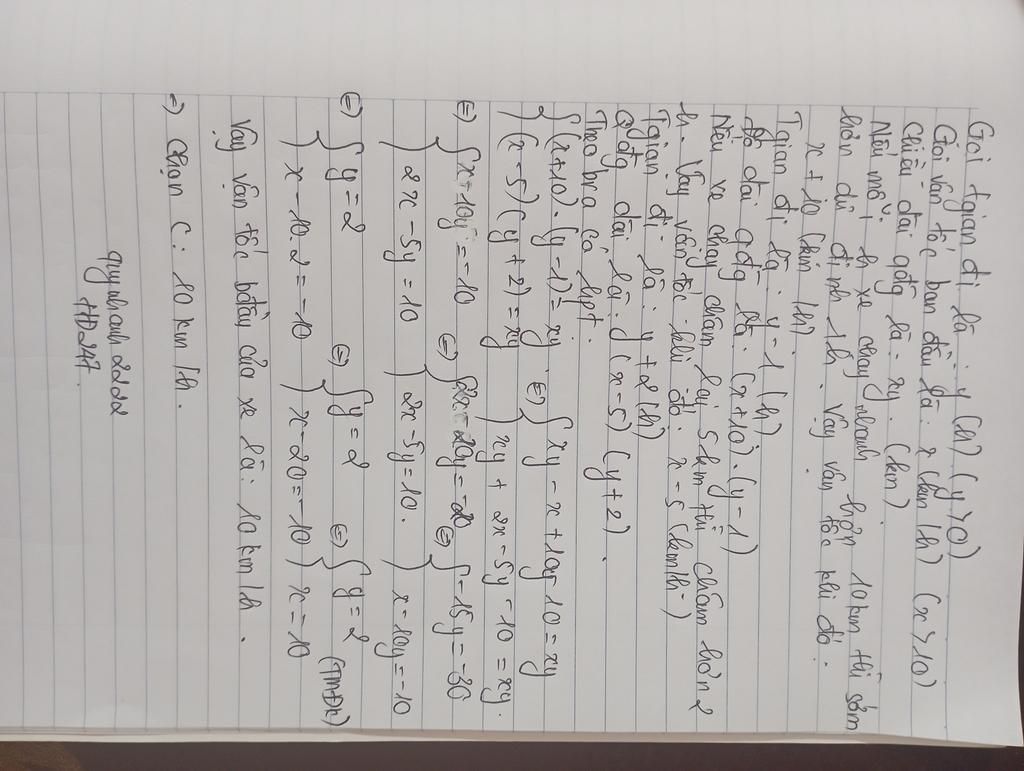 Gọi tgian đi là : y (h) (y > 0)
Gọi vận tốc ban đầu là : x (km/h) (x > 10)
Chiều dài qđg là : xy. (km)
Nếu mỗi h xe chạy nhanh hơn 10km thì sớm
hơn dự định 1h. Vậy vận tốc khi đó :
x + 10 (km/h).
Tgian đi là : y - 1 (h)
Độ dài qđg là : (x + 10) . (y - 1)
Nếu xe chạy chậm lại 5km thì chậm hơn 2
h. Vậy vận tốc khi đó : x - 5 (km/h)
Tgian đi là : y + 2 (h)
Qđg dài là : (x - 5) (y + 2) .
Theo bra có hpt.
{ (x + 10) . (y - 1) = xy (=) { xy - x + 10y - 10 = xy
(x - 5) (y + 2) = xy } xy + 2x - 5y - 10 = xy.
(=) { x - 10y = -10 (=) { 2x - 20y = -20 (=) { -15y = -30
2x - 5y = 10 } 2x - 5y = 10. } x - 10y = -10
(=) { y = 2 (=) { y = 2 (=) { y = 2 (TMĐK)
x - 10.2 = -10 } x - 20 = -10 } x = 10
Vậy vận tốc bđầu của xe là : 10 km/h .
=) Chọn C : 10 km/h .
quynhanh2222
HD247.